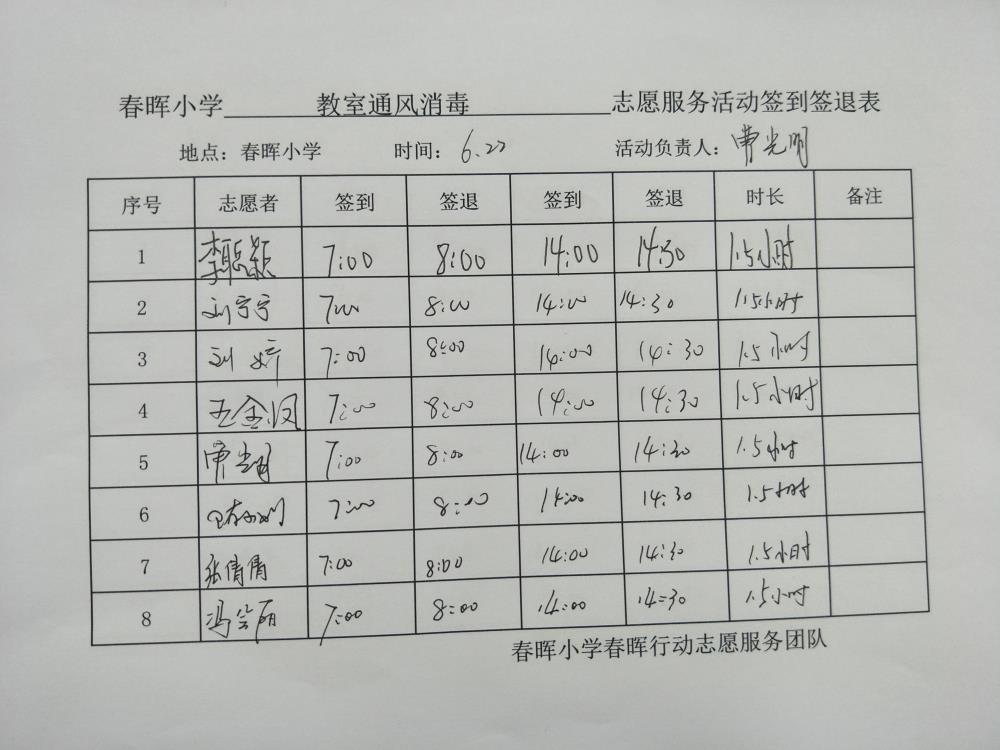 春晖小学 教室通风消毒 志愿服务活动签到签退表
地点：春晖小学 时间：6.22 活动负责人：常光明
序号 志愿者 签到 签退 签到 签退 时长 备注
1 李聪颖 7:00 8:00 14:00 14:30 1.5小时
2 刘宁宁 7:00 8:00 14:00 14:30 1.5小时
3 刘婷 7:00 8:00 14:00 14:30 1.5小时
4 王金凤 7:00 8:00 14:00 14:30 1.5小时
5 常光明 7:00 8:00 14:00 14:30 1.5小时
6 7:00 8:00 14:00 14:30 1.5小时
7 张倩倩 7:00 8:00 14:00 14:30 1.5小时
8 冯会丽 7:00 8:00 14:00 14:30 1.5小时
春晖小学春晖行动志愿服务团队